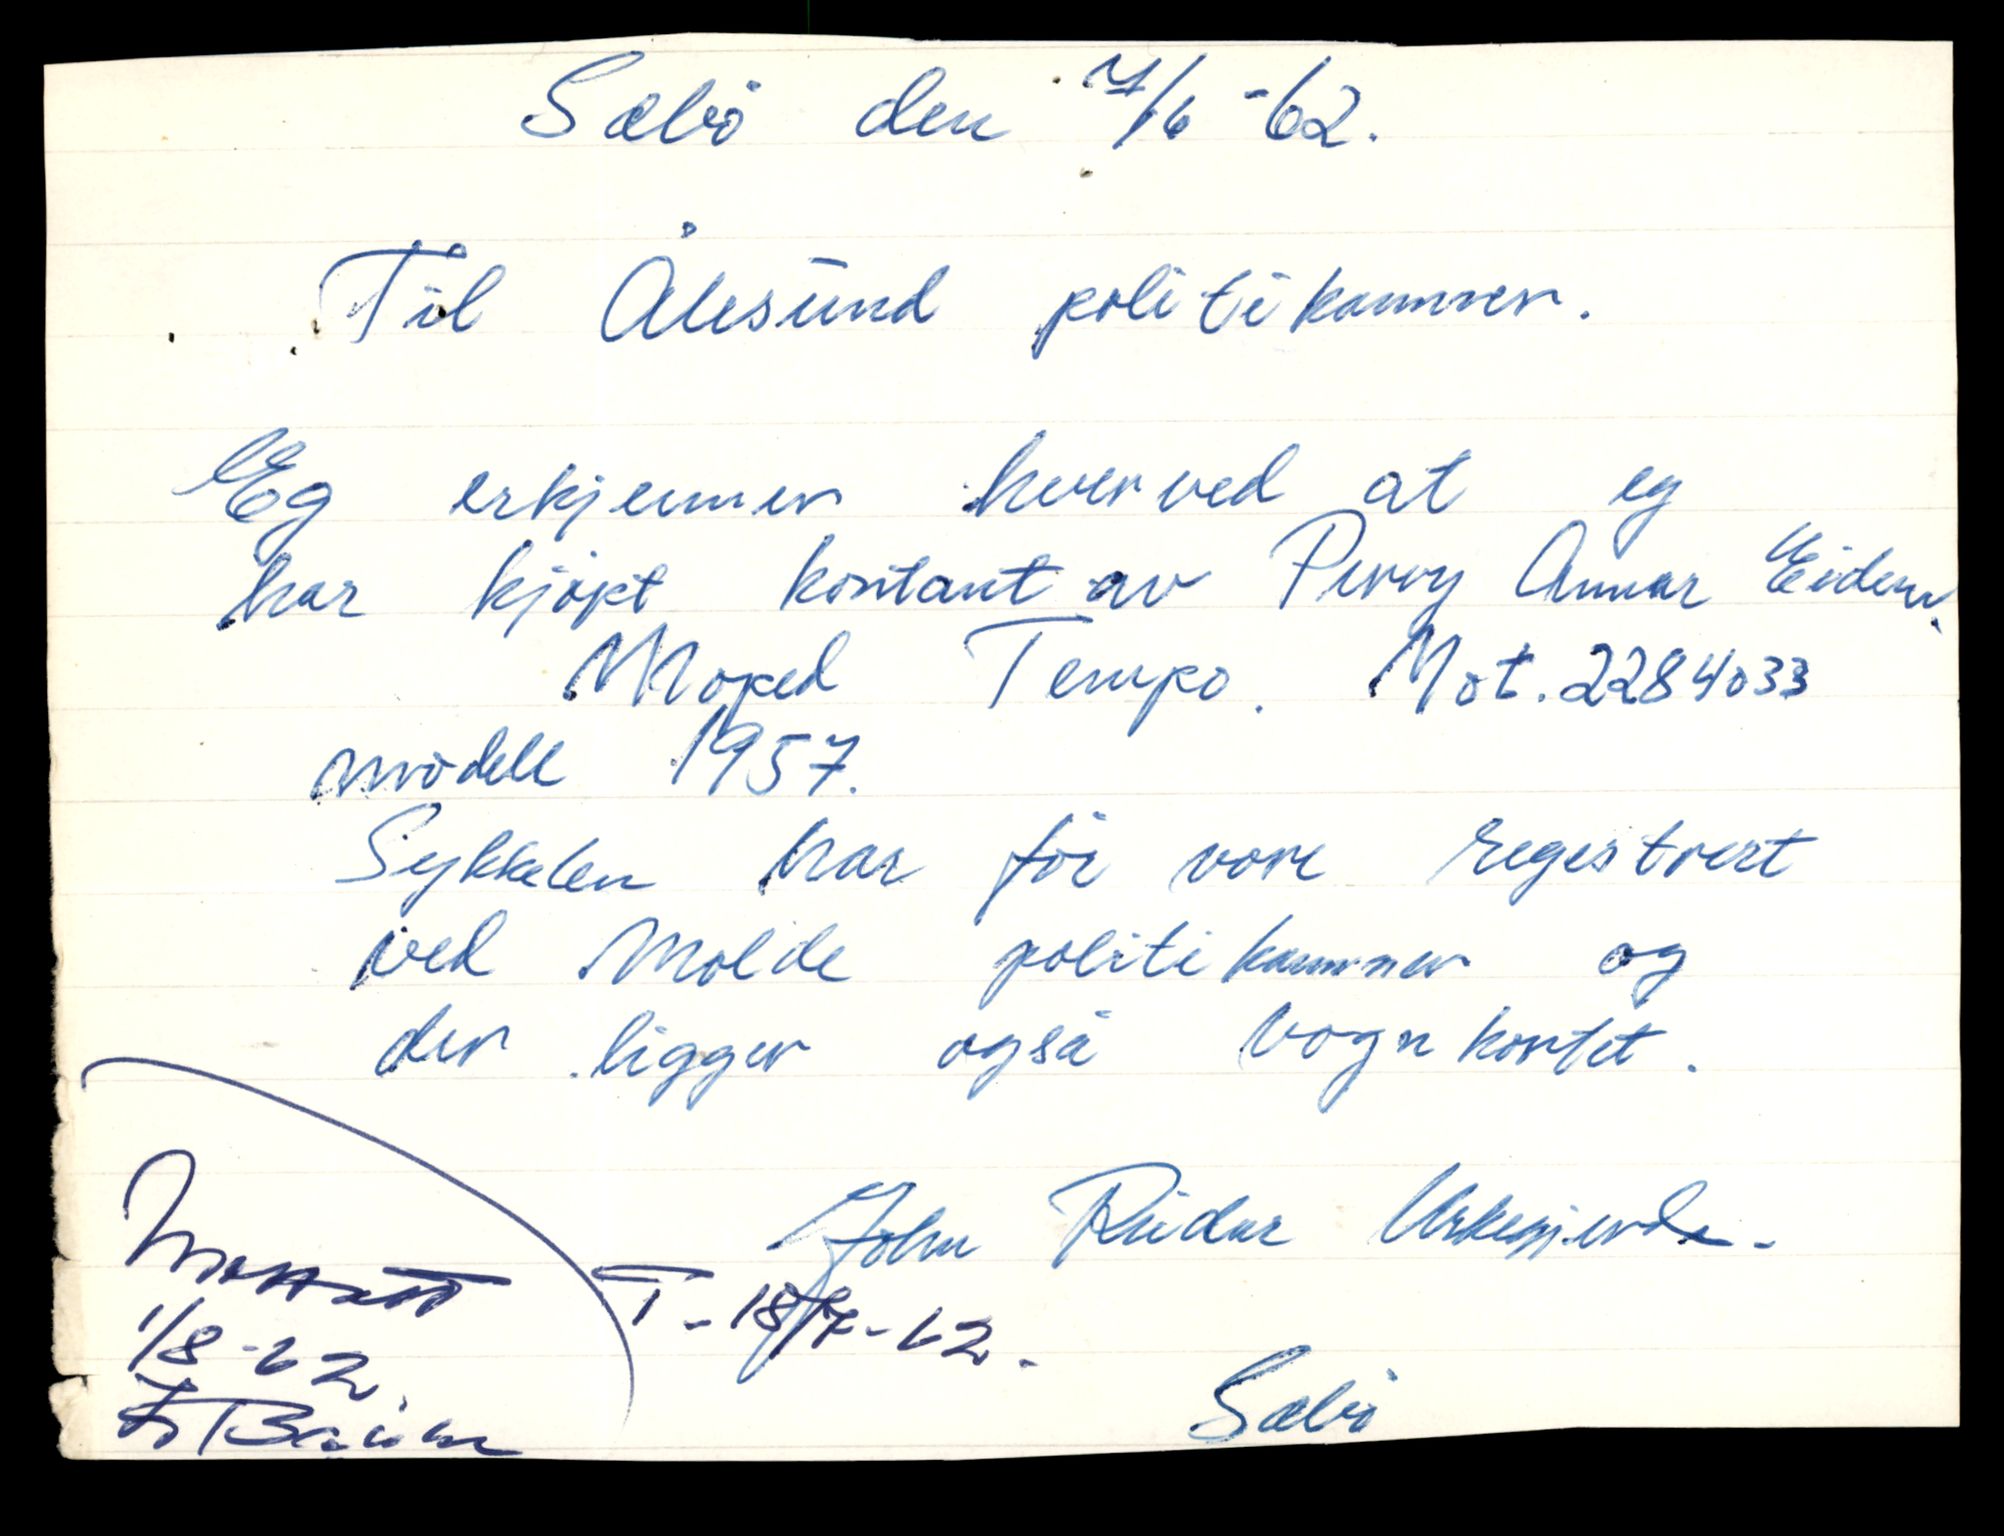 Sæbö den 7/6 -62.
Til Ålesund politikammer.
Eg erkjenner herved at eg
har kjöpt kontant av Perry Annar Eidem
Moped Tempo. Mot. 2284033
modell 1957.
Sykkelen har för vore registrert
ved Molde politikammer og
der ligger også vognkortet.
John Reidar Urkegjerde.
T-18/7-62.
Sæbö
Mottatt
1/8-62